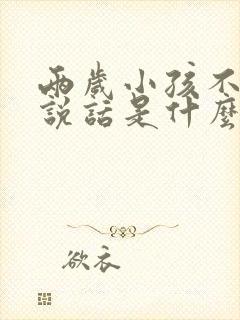 兩歲小孩不
說話是什麼
欲衣